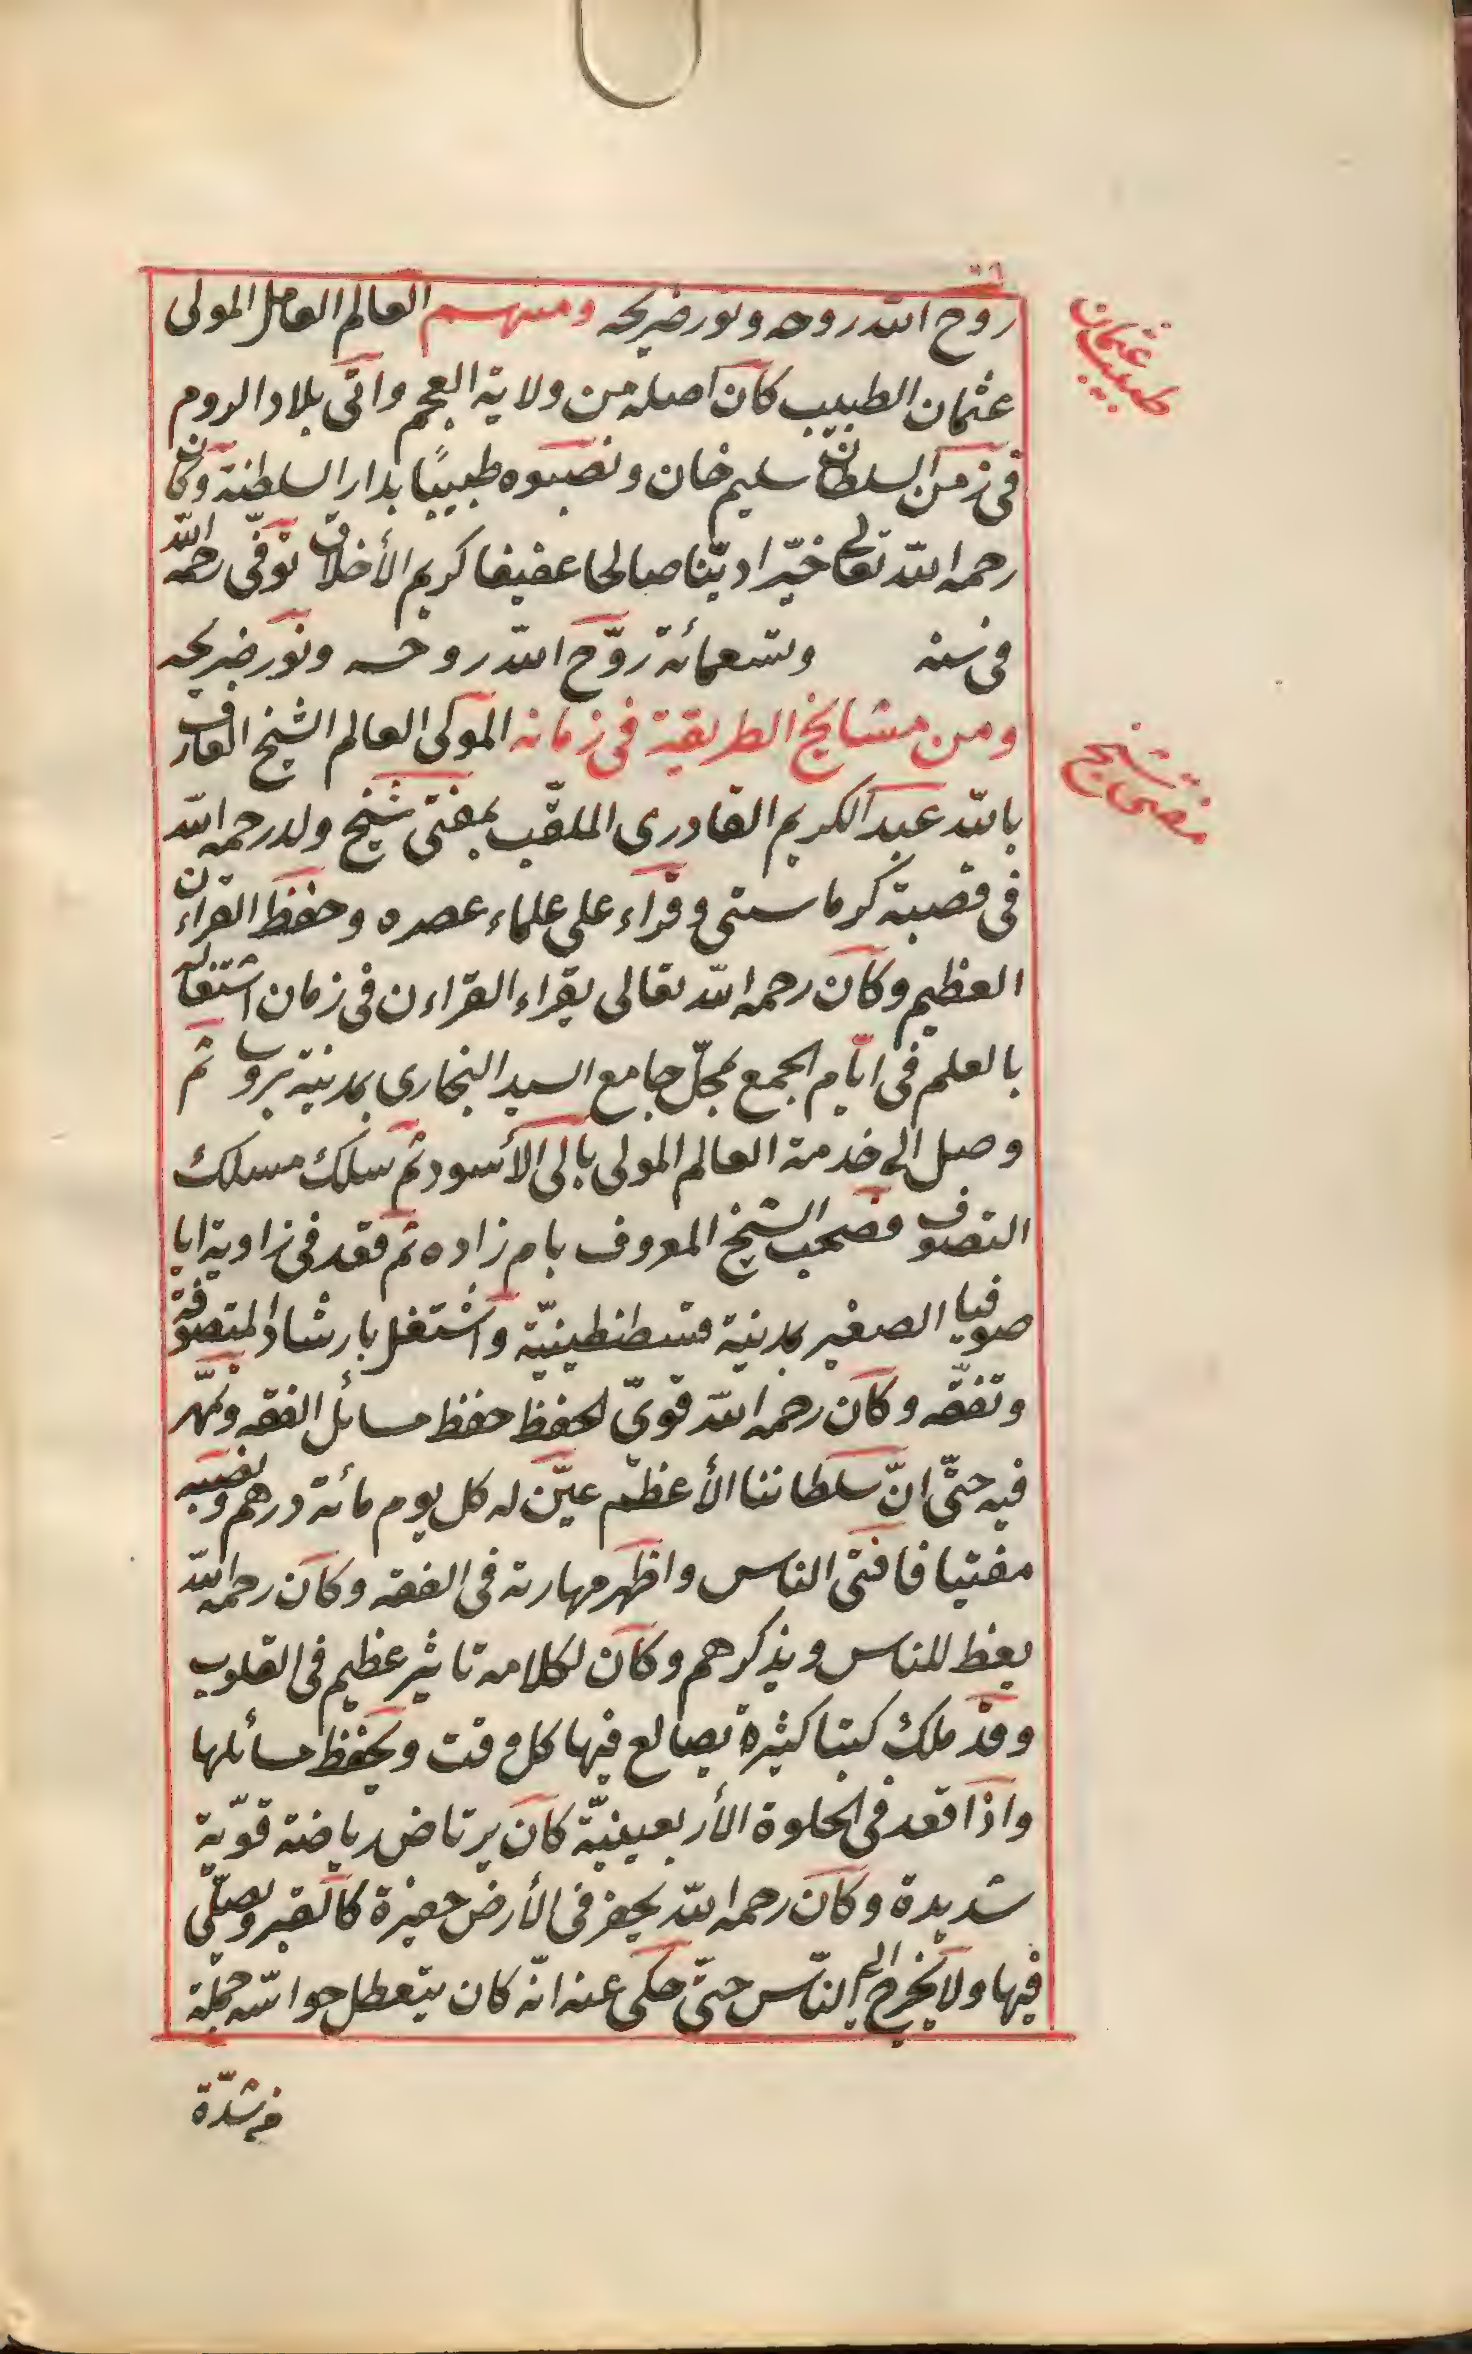 روح الله روحه ونور ضريحه ومنهم العالم العامل المولى
عثمان الطبيب كان اصله من ولاية العجم واتى بلاد الروم
فى زمن السلطان سليم خان ونصبوه طبيبًا بدار السلطنة وكان
رحمه الله تعالى خيّرا ديّنا صالحا عفيفا كريم الأخلاق توفّى رحمه الله
فى سنة وتسعمائة روّح الله روحه ونوّر ضريحه
ومن مشايخ الطريقة فى زمانه المولى العالم الشيخ العارف
بالله عبد الكريم القادرى الملقّب بمفتى شيخ ولد رحمه الله
فى قصبة كرماستى وقراء على علماء عصره وحفظ القراءن
العظيم وكان رحمه الله تعالى يقراء القراءن فى زمان اشتغاله
بالعلم فى ايّام الجمع بمحلّ جامع السيد البخارى بمدنية بروسا ثم
وصل الى خدمة العالم المولى بالى الأسود ثم سلك مسلك
التصوف فصحب الشيخ المعروف بام زاده ثم قعد فى زاوية ايا
صوفيا الصغير بمدنية قسطنطينيّة واشتغل بارشاد المتصوفة
وتفقّه وكان رحمه الله قوىّ لحفظ حفظ مسائل الفقه وتمهّر
فيه حتّى انّ سلطاننا الأعظم عيّن له كل يوم مائة درهم ونصبه
مفتيا فافتى الناس واظهر مهارته فى الفقه وكان رحمه الله
يعظ للناس ويذكرهم وكان لكلامه تاثير عظيم فى القلوب
وقد ملك كبتا كثيرة يصالع فيها كل وقت ويحفظ مسائلها
واذا قعد فى الخلوة الأربعينيّة كان يرتاض رياضة قويّة
شديدة وكان رحمه الله يحفر فى الأرض حفيرة كالقبر ويصلّى
فيها ولا يخرج الى النّاس حتىّ حكى عنه انّه كان يتعطل حواسّه جملة
من شدّة
طبيب عثمان
مفتى شيخ